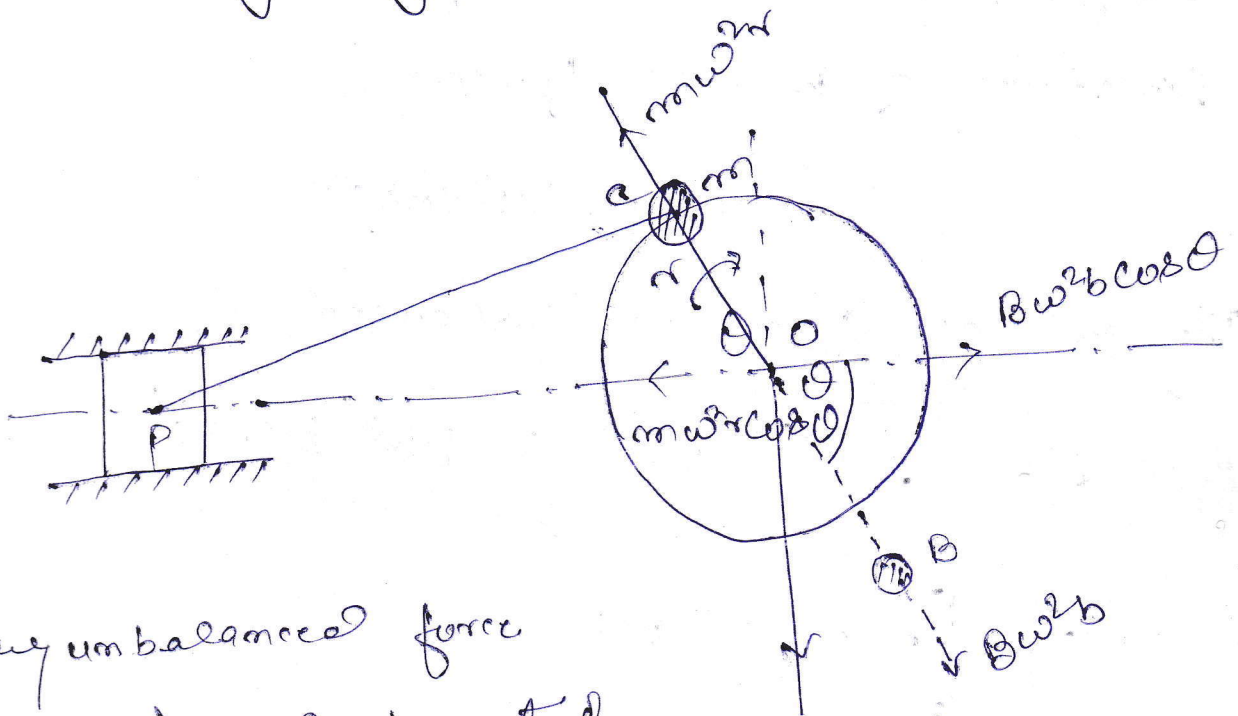 mω²r
C
m
r
θ
O
Bω²b cosθ
θ
mω²r cosθ
P
B
Bω²b
unbalanced force